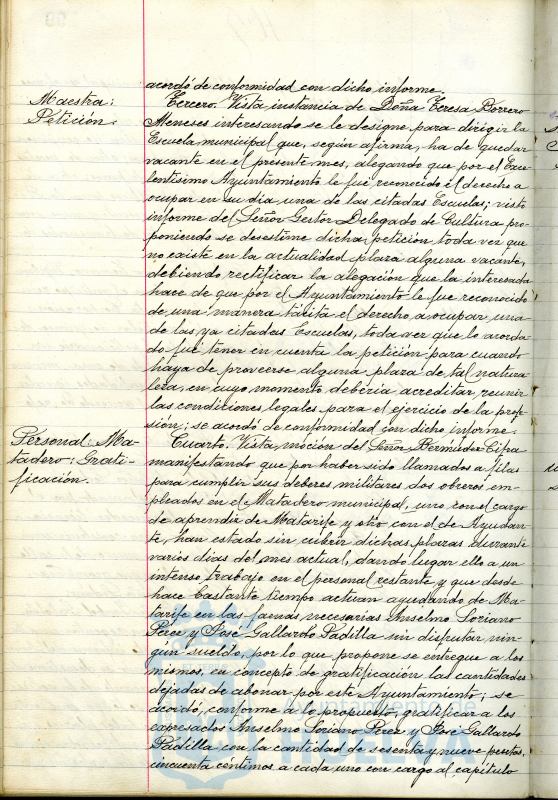 acordó de conformidad con dicho informe.
Maestra:
Petición.
Tercero. Vista instancia de Doña Teresa Borrero
Meneses interesando se le designe para dirigir la
Escuela municipal que, según afirma, ha de quedar
vacante en el presente mes, alegando que por el Exce-
lentísimo Ayuntamiento le fue reconocido el derecho a
ocupar en su día una de las citadas Escuelas; visto
informe del Señor Gestor Delegado de Cultura pro-
poniendo se desestime dicha petición, toda vez que
no existe en la actualidad plaza alguna vacante,
debiendo rectificar la alegación que la interesada
hace de que por el Ayuntamiento le fue reconocido
de una manera tácita el derecho a ocupar una
de las ya citadas Escuelas, toda vez que lo acorda-
do fué tener en cuenta la petición para cuando
haya de proveerse alguna plaza de tal natura-
leza, en cuyo momento debería acreditar reunir
las condiciones legales para el ejercicio de la profe-
sión; se acordó de conformidad con dicho informe.
Personal: Ma-
tadero: Grati-
ficación.
Cuarto. Vista moción del Señor Bermúdez Cifra
manifestando que por haber sido llamados a filas
para cumplir sus deberes militares dos obreros em-
pleados en el Matadero municipal, uno con el cargo
de aprendiz de Matarife y otro con el de Ayudan-
te, han estado sin cubrir dichas plazas durante
varios días del mes actual, dando lugar ello a un
intenso trabajo en el personal restante y que desde
hace bastante tiempo actúan ayudando de Ma-
tarife en las faenas necesarias Anselmo Soriano
Pérez y José Gallardo Padilla sin disfrutar nin-
gún sueldo, por lo que propone se entregue a los
mismos, en concepto de gratificación las cantidades
dejadas de abonar por este Ayuntamiento; se
acordó, conforme a lo propuesto, gratificar a los
expresados Anselmo Soriano Pérez y José Gallardo
Padilla con la cantidad de sesenta y nueve pesetas,
cincuenta céntimos a cada uno con cargo al capítulo
Ayuntamiento de
HUELVA